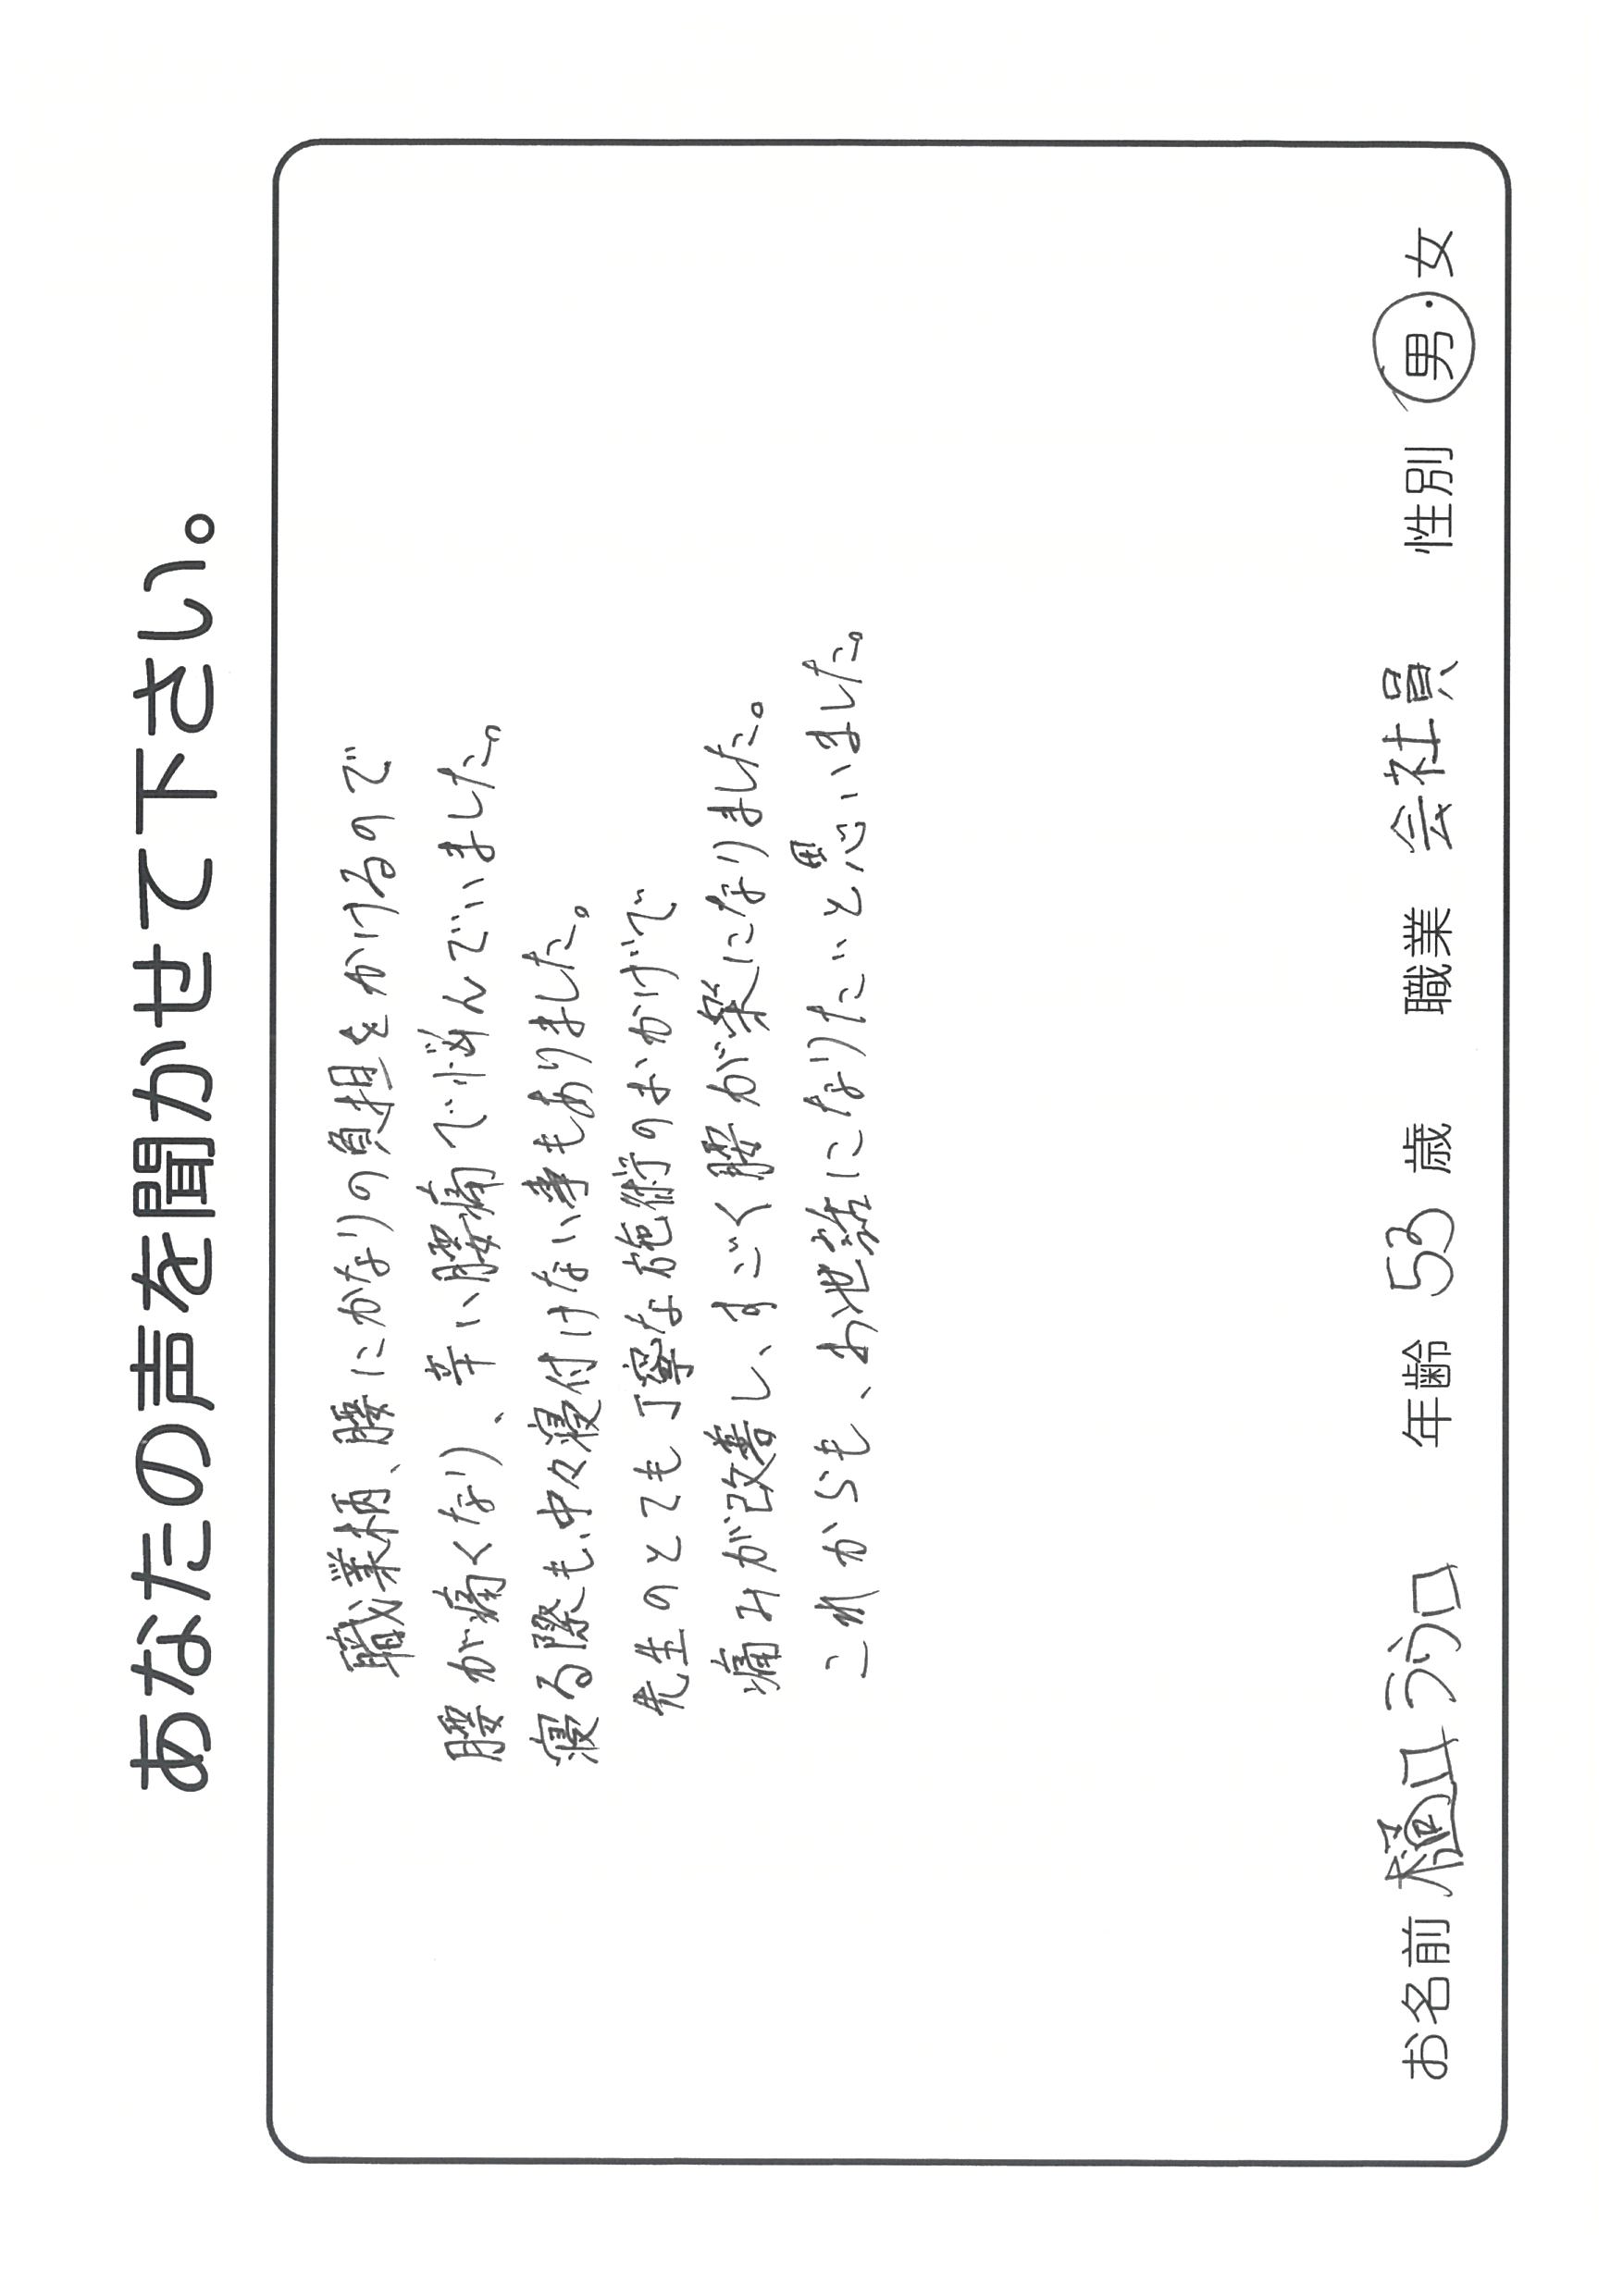 あなたの声を聞かせて下さい。
職業柄、腰にかなりの負担をかけるので
腰が痛くなり、辛い腰痛で悩んでいました。
寝る際も、中々寝付けない事もありました。
先生のとても丁寧な施術のおかげで
痛みが改善し、すごく腰が楽になりました。
これからも、お世話になりたいと思いました。
お名前 樋口 年齢 53 歳 職業 会社員 性別 男・女